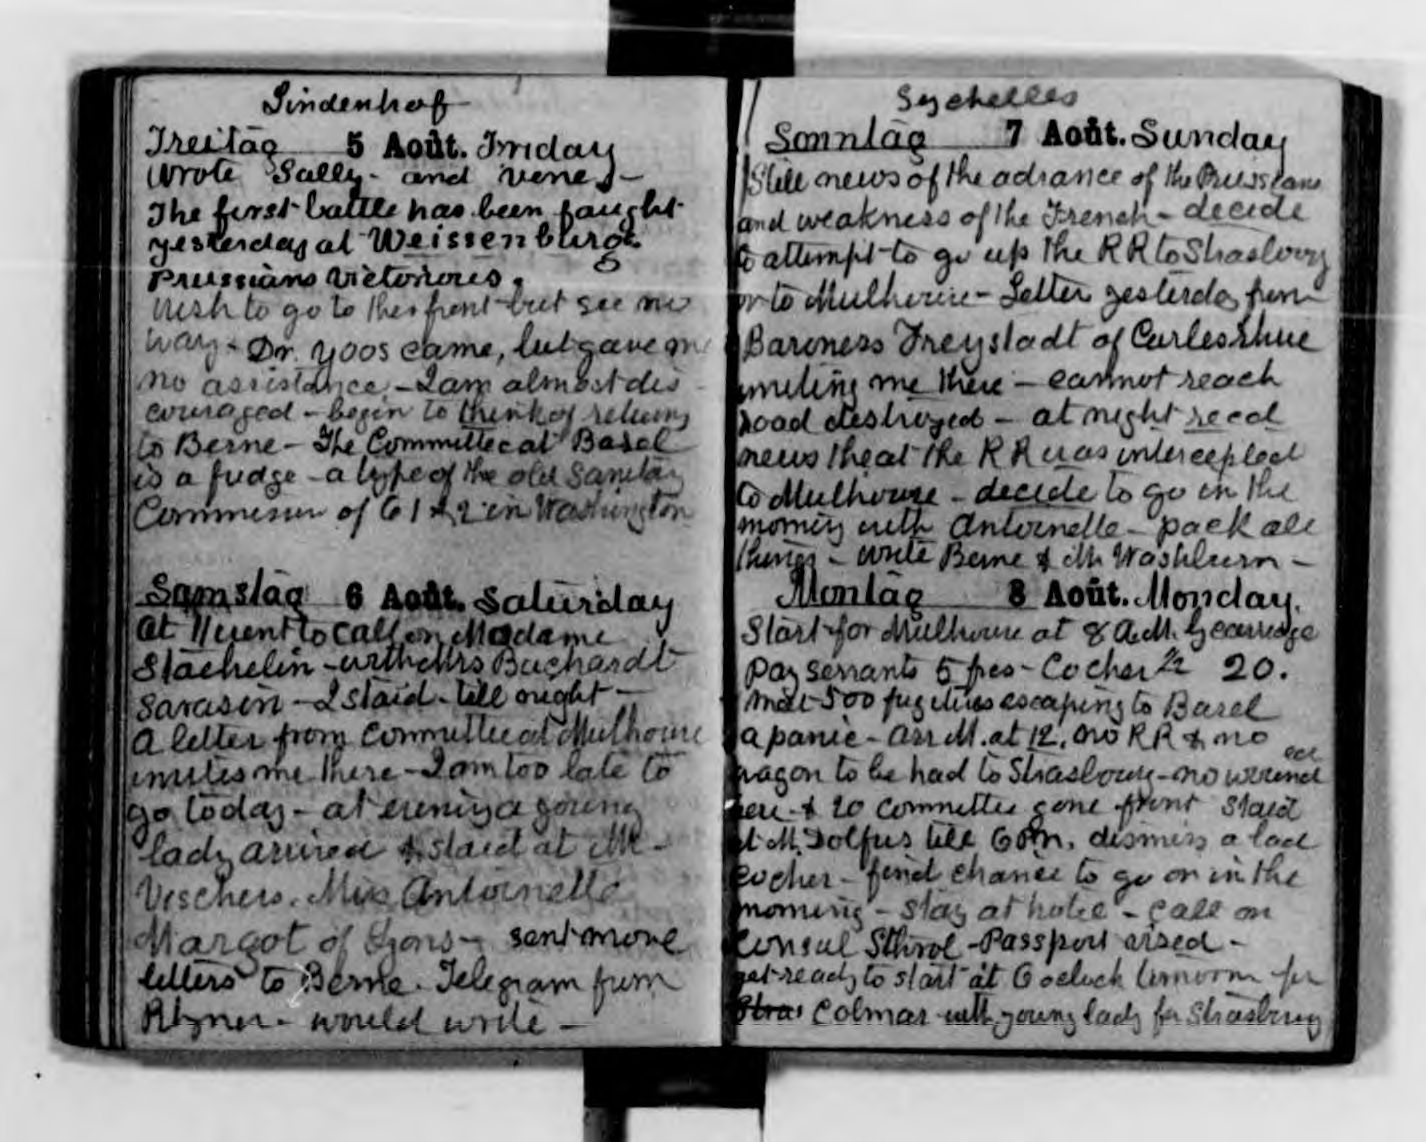 Lindenhof
Freitag 5 Août. Friday
wrote Sally - and Vene
The first battle has been faught
yesterday at Weissenburg.
Prussians Victorious.
Wish to go to the front but see no
way - Dr. Yoos came, but gave me
no assistance - I am almost dis-
couraged - begin to think of returning
to Berne - The Committee at Basel
is a fudge - a type of the old Sanitary
Commission of 61 & 2 in Washington
Samstag 6 Août. Saturday
at 11 went to call on Madame
Staehelin - with Mrs Buchardt
Sarasin - I staid till night -
A letter from Committee at Mulhouse
invites me there - I am too late to
go today - at evening a young
lady arrived & staid at Mr
Vischers. Miss Antoinelle
Margot of Lyons - sent more
letters to Berne. Telegram from
would write -
Seychelles
Sonntag 7 Août. Sunday
Still news of the advance of the Prussians
and weakness of the French - decide
to attempt to go up the RR to Strasbourg
or to Mulhouse - Letter yesterday from
Baroness Freystadt of Carleshrue
inviting me there - cannot reach
road destroyed - at night recd
news theat the RR was intercepted
to Mulhouse - decide to go in the
morning with Antoinelle - pack all
things - write Berne & Mr Washburn -
Montag 8 Août. Monday.
Start for Mulhouse at 8 A.M. by carriage
Pay servants 5 frcs - Cocher 20.
Met 500 fugitives escaping to Basel
a panic - arr M. at 12. no RR & no
wagon to be had to Strasbourg - no wounded
here & 20 committee gone front staid
at M. Dolfus till 6 P.M. dismiss a bad
cocher - find chance to go on in the
morning - stay at hotel - call on
Consul - Passport vised -
get ready to start at 6 oclock tomorrow for
Stras Colmar with young lady for Strasburg